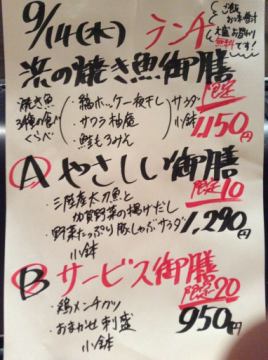 9/14(木) ランチ
ご飯
お味噌汁
大盛 お替わり
無料です!
浜の焼き魚御膳
焼き魚
3種の食べ
くらべ
・縞ホッケ一夜干し
・サワラ柚庵
・鮭もろみん
サラダ
小鉢
限定
1,150円
A やさしい御膳
限定10
・三陸産太刀魚と
加賀野菜の揚げだし
・野菜たっぷり豚しゃぶサラダ
小鉢
1,290円
B サービス御膳
限定20
・鶏メンチカツ
・おまかせ刺盛
小鉢
950円